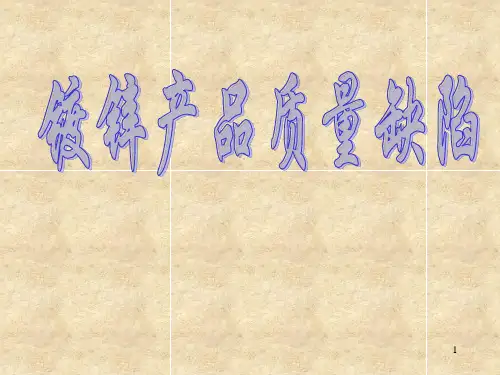 镀锌产品质量缺陷
1